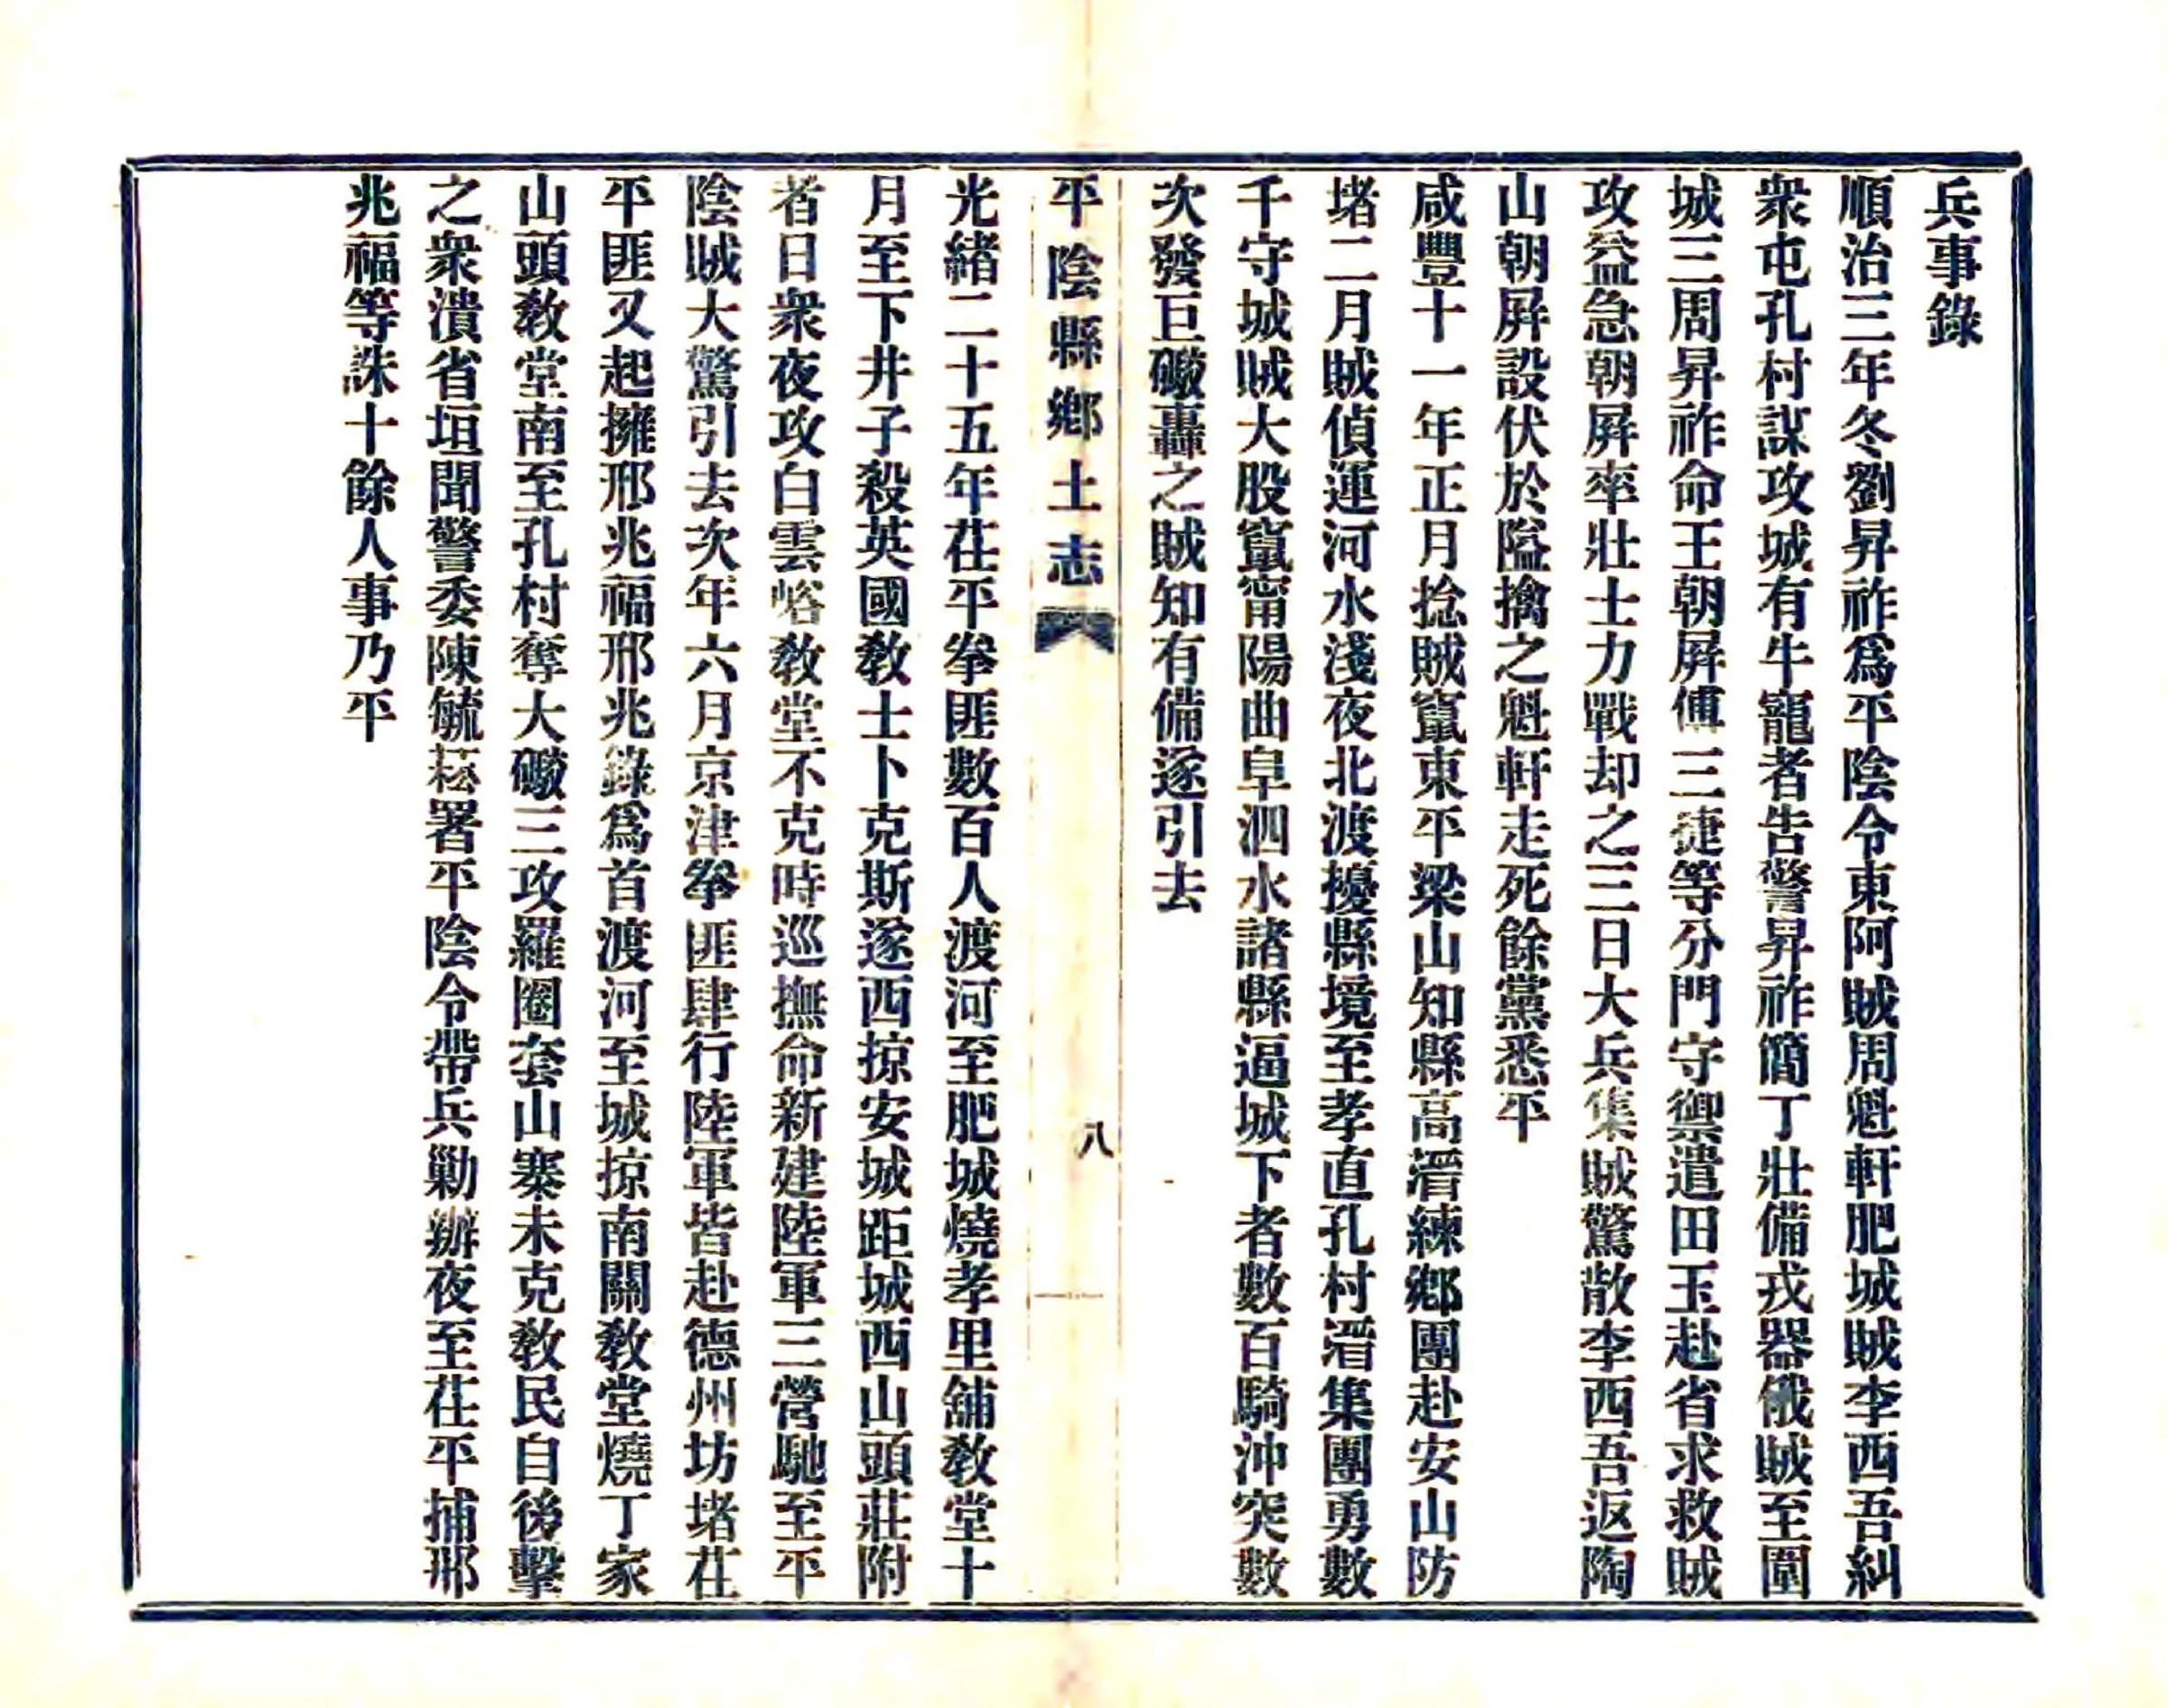 兵事錄
順治三年冬劉昇祚爲平陰令東阿賊周魁軒肥城賊李西吾糾
衆屯孔村謀攻城有牛寵者告警昇祚簡丁壯備戎器俄賊至圍
城三周昇祚命王朝屛傅三捷等分門守禦遣田玉赴省求救賊
攻益急朝屛率壯士力戰却之三日大兵集賊驚散李西吾返陶
山朝屛設伏於隘擒之魁軒走死餘黨悉平
咸豐十一年正月捻賊竄東平梁山知縣高濳練鄉團赴安山防
堵二月賊偵運河水淺夜北渡擾縣境至孝直孔村濳集團勇數
千守城賊大股竄甯陽曲阜泗水諸縣逼城下者數百騎沖突數
次發巨礮轟之賊知有備遂引去
平陰縣鄉土志
八
光緒二十五年茌平拳匪數百人渡河至肥城燒孝里舖敎堂十
月至下井子殺英國敎士卜克斯遂西掠安城距城西山頭莊附
者日衆夜攻白雲峪敎堂不克時巡撫命新建陸軍三營馳至平
陰賊大驚引去次年六月京津拳匪肆行陸軍皆赴德州坊堵茌
平匪又起擁邢兆福邢兆錄爲首渡河至城掠南關敎堂燒丁家
山頭敎堂南至孔村奪大礮三攻羅圈套山寨未克敎民自後擊
之衆潰省垣聞警委陳毓菘署平陰令帶兵勦辦夜至茌平捕邢
兆福等誅十餘人事乃平